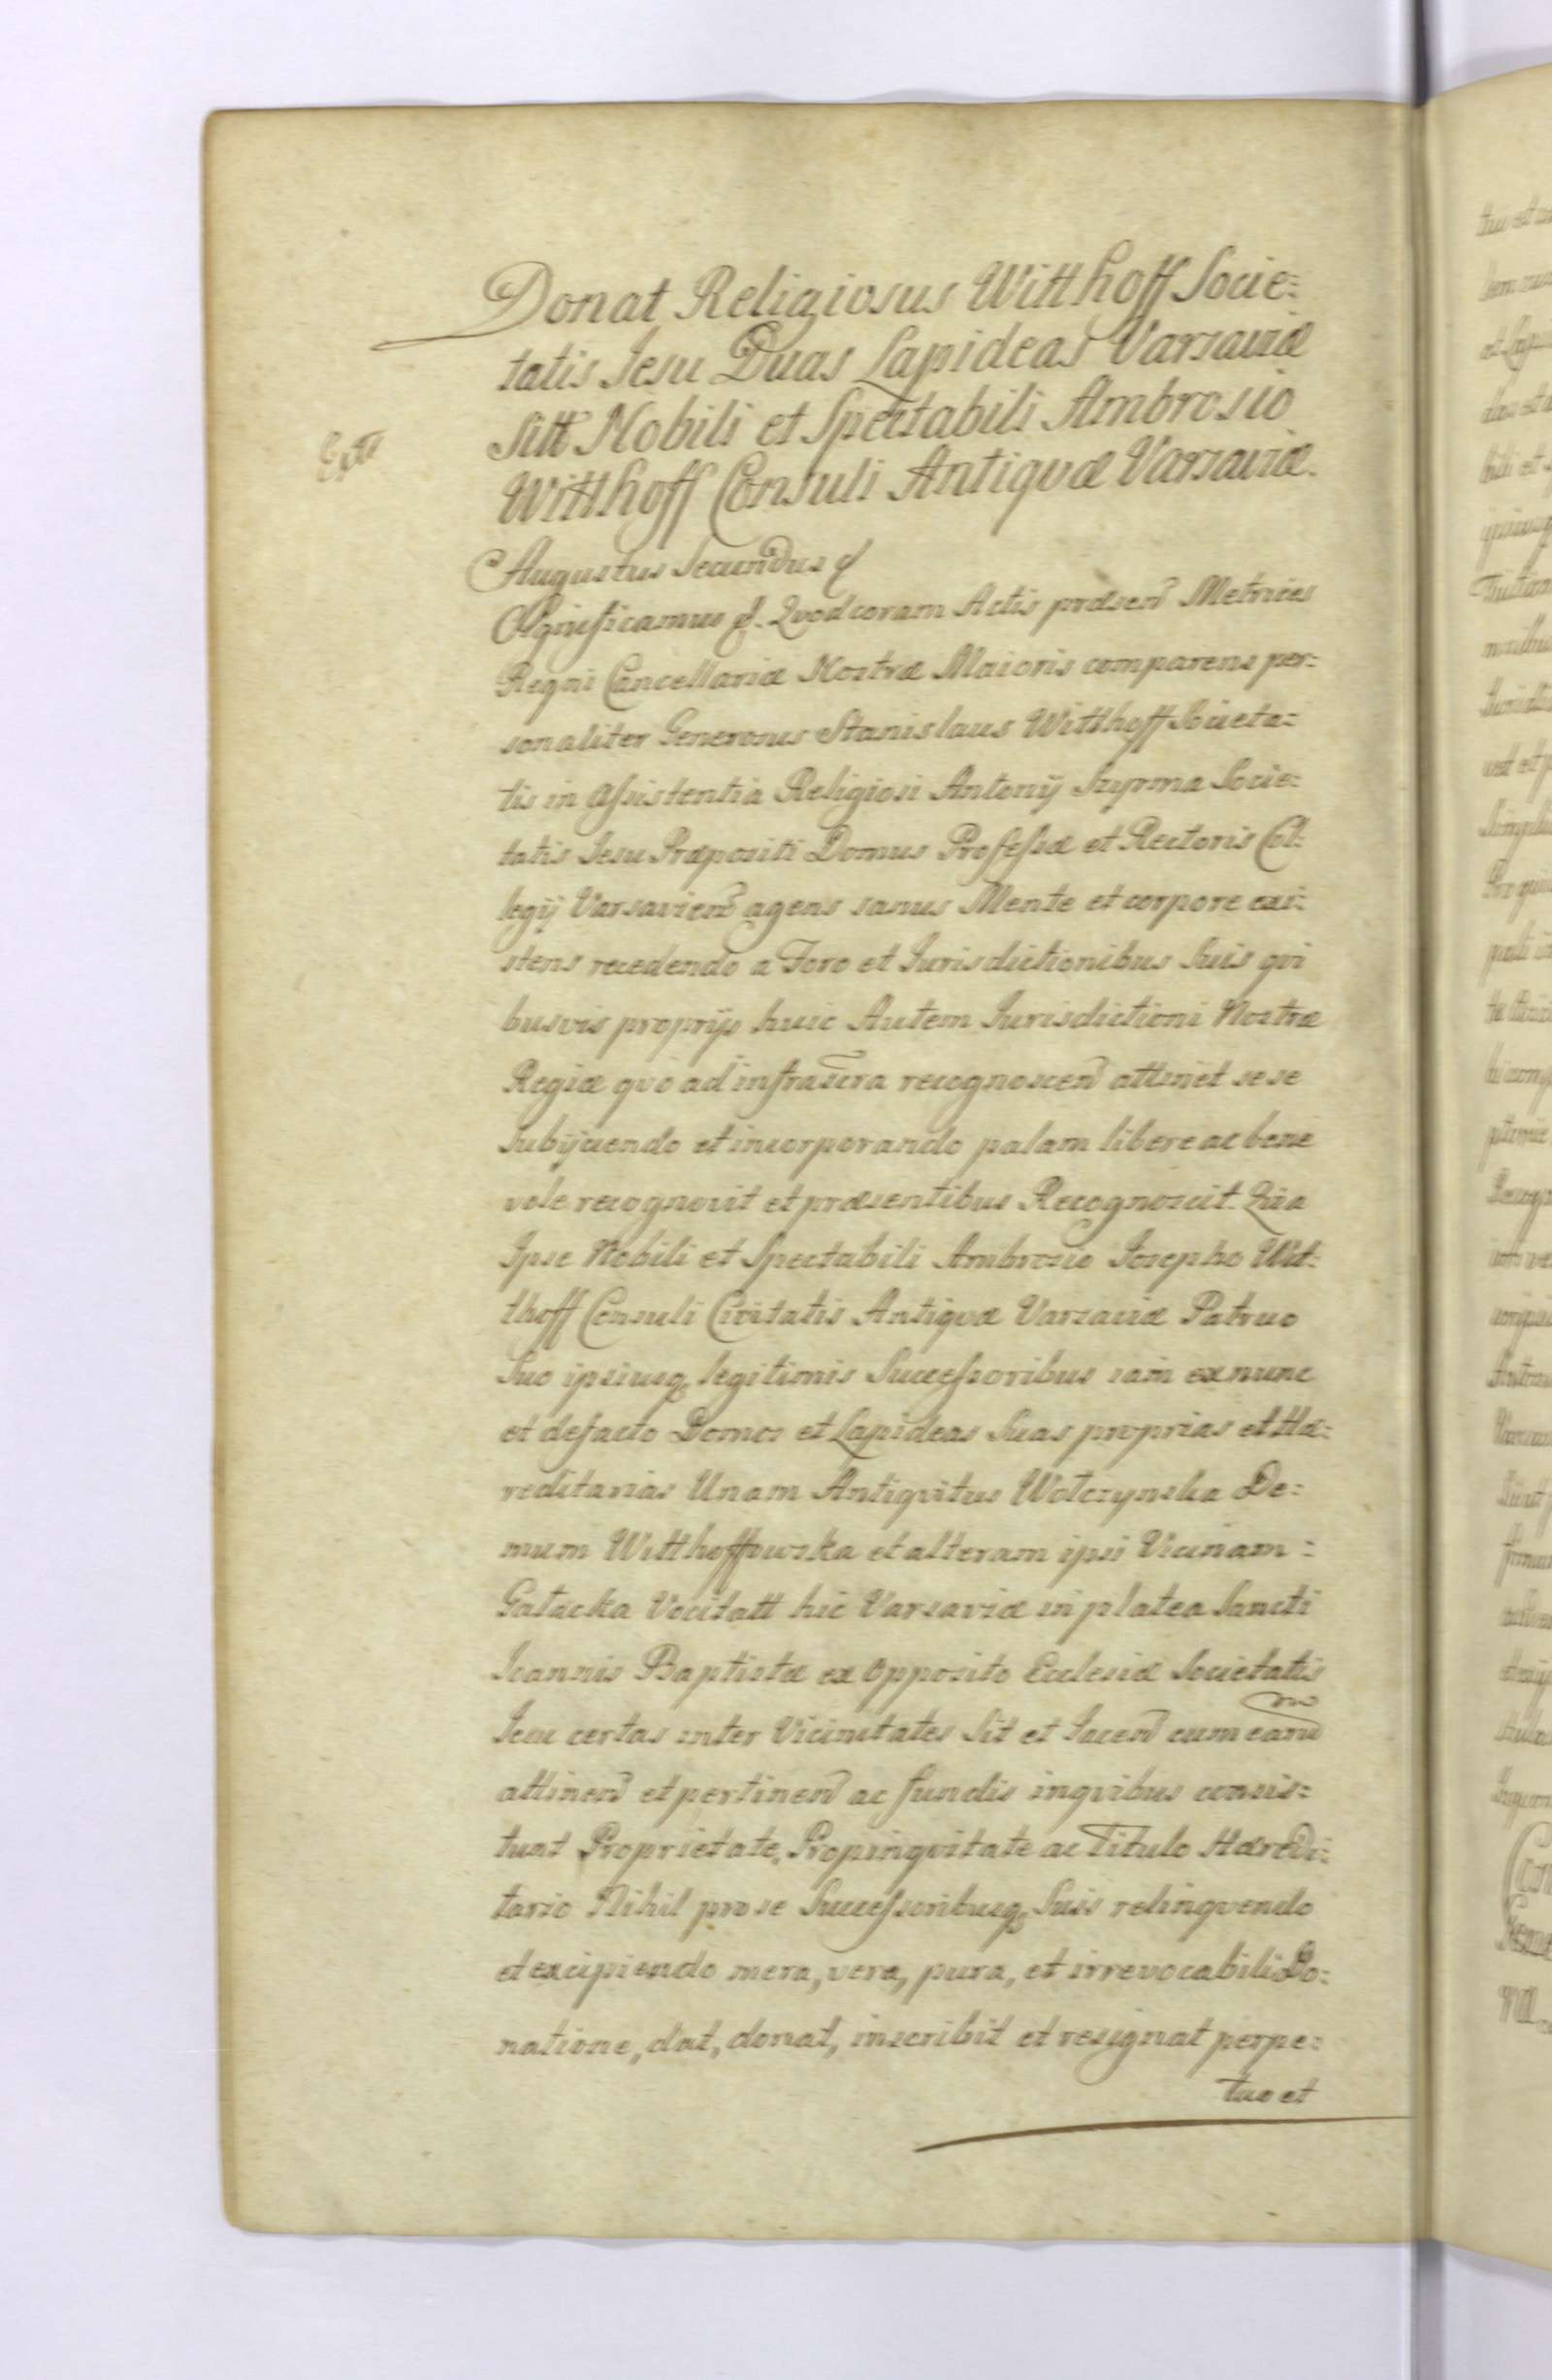 Donat Religiosus Witthoff Socie:
tatis Jesu Duas Lapideas Varsaviæ
Sitt Nobili et Spectabili Ambrosio
Witthoff Consuli Antiquæ Varsaviæ.
Augustus Secundus
Significamus Quod coram Actis præsen Metrices
Regni Cancellariæ Nostræ Maioris comparens per:
sonaliter Generosus Stanislaus Witthoff Societa:
tis in Assistentia Religiosi Antonij Szyrma Socie:
tatis Jesu Præpositi Domus Professæ et Rectoris Col:
legij Varsavien agens sanus Mente et corpore exi:
stens recedendo a Foro et Jurisdictionibus Suis qvi
busvis proprijs huic Autem Jurisdictioni Nostræ
Regiæ qvo ad infrascra recognoscen attinet sese
Subijciendo et incorporando palam libere ac bene
vole recognovit et præsentibus Recognoscit. Qvia
Ipse Nobili et Spectabili Ambrosio Josepho Wit:
thoff Consuli Civitatis Antiqvæ Varsaviæ Patruo
Suo ipsiusq legitimis Successoribus iam ex nunc
et defacto Domos et Lapideas Suas proprias et Hæ:
reditarias Unam Antiqvitus Wolczynska De:
mum Witthoffowska et alteram ipsi Vicinam :
Gatacka Vocitatt hic Varsaviæ in platea Sancti
Joannis Baptistæ ex Opposito Ecclesiæ Societatis
Jesu certas inter Vicinitates Sit et Jacen cum earu
attinen et pertinen ac fundis in qvibus consis:
tunt Proprietate, Propinqvitate ac Titulo Hæredi:
tario Nihil pro se Successoribusq Suis relinqvendo
et excipiendo mera, vera, pura, et irrevocabili Do:
natione, dat, donat, inscribit et resignat perpe:
tuo et